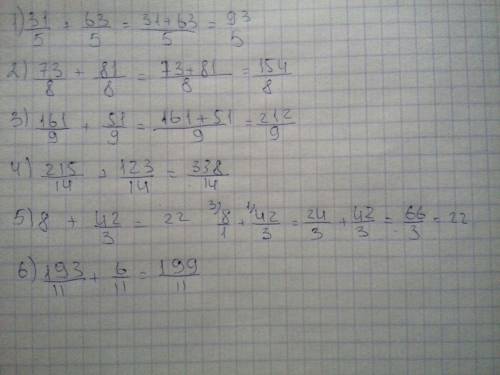 1) 31/5 + 63/5 = 31+63/5 = 93/5
2) 73/8 + 81/8 = 73+81/8 = 154/8
3) 161/9 + 51/9 = 161+51/9 = 212/9
4) 215/14 + 123/14 = 338/14
5) 8 + 42/3 = 22 3) 8/1 + 1) 42/3 = 24/3 + 42/3 = 66/3 = 22
6) 193/11 + 6/11 = 199/11